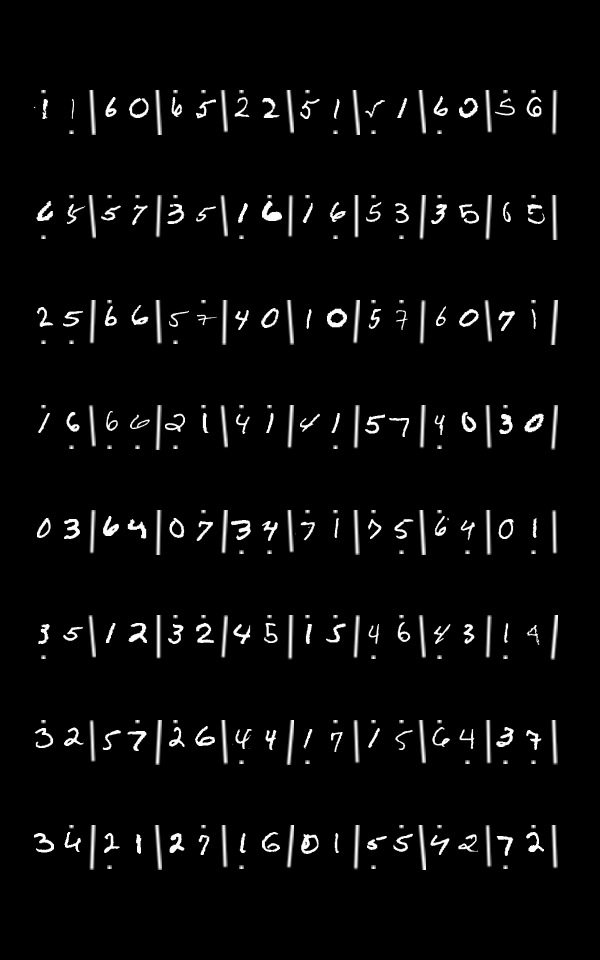 1 1 | 6 0 | 6 5 | 2 2 | 5 1 | 5 1 | 6 0 | 5 6 |
6 5 | 5 7 | 3 5 | 1 6 | 1 6 | 5 3 | 3 5 | 6 5 |
2 5 | 6 6 | 5 7 | 4 0 | 1 0 | 5 7 | 6 0 | 7 1 |
1 6 | 6 6 | 2 1 | 4 1 | 4 1 | 5 7 | 4 0 | 3 0 |
0 3 | 6 4 | 0 7 | 3 4 | 7 1 | 7 5 | 6 4 | 0 1 |
3 5 | 1 2 | 3 2 | 4 5 | 1 5 | 4 6 | 4 3 | 1 4 |
3 2 | 5 7 | 2 6 | 4 4 | 1 7 | 1 5 | 6 4 | 3 7 |
3 4 | 2 1 | 2 7 | 1 6 | 0 1 | 5 5 | 4 2 | 7 2 |